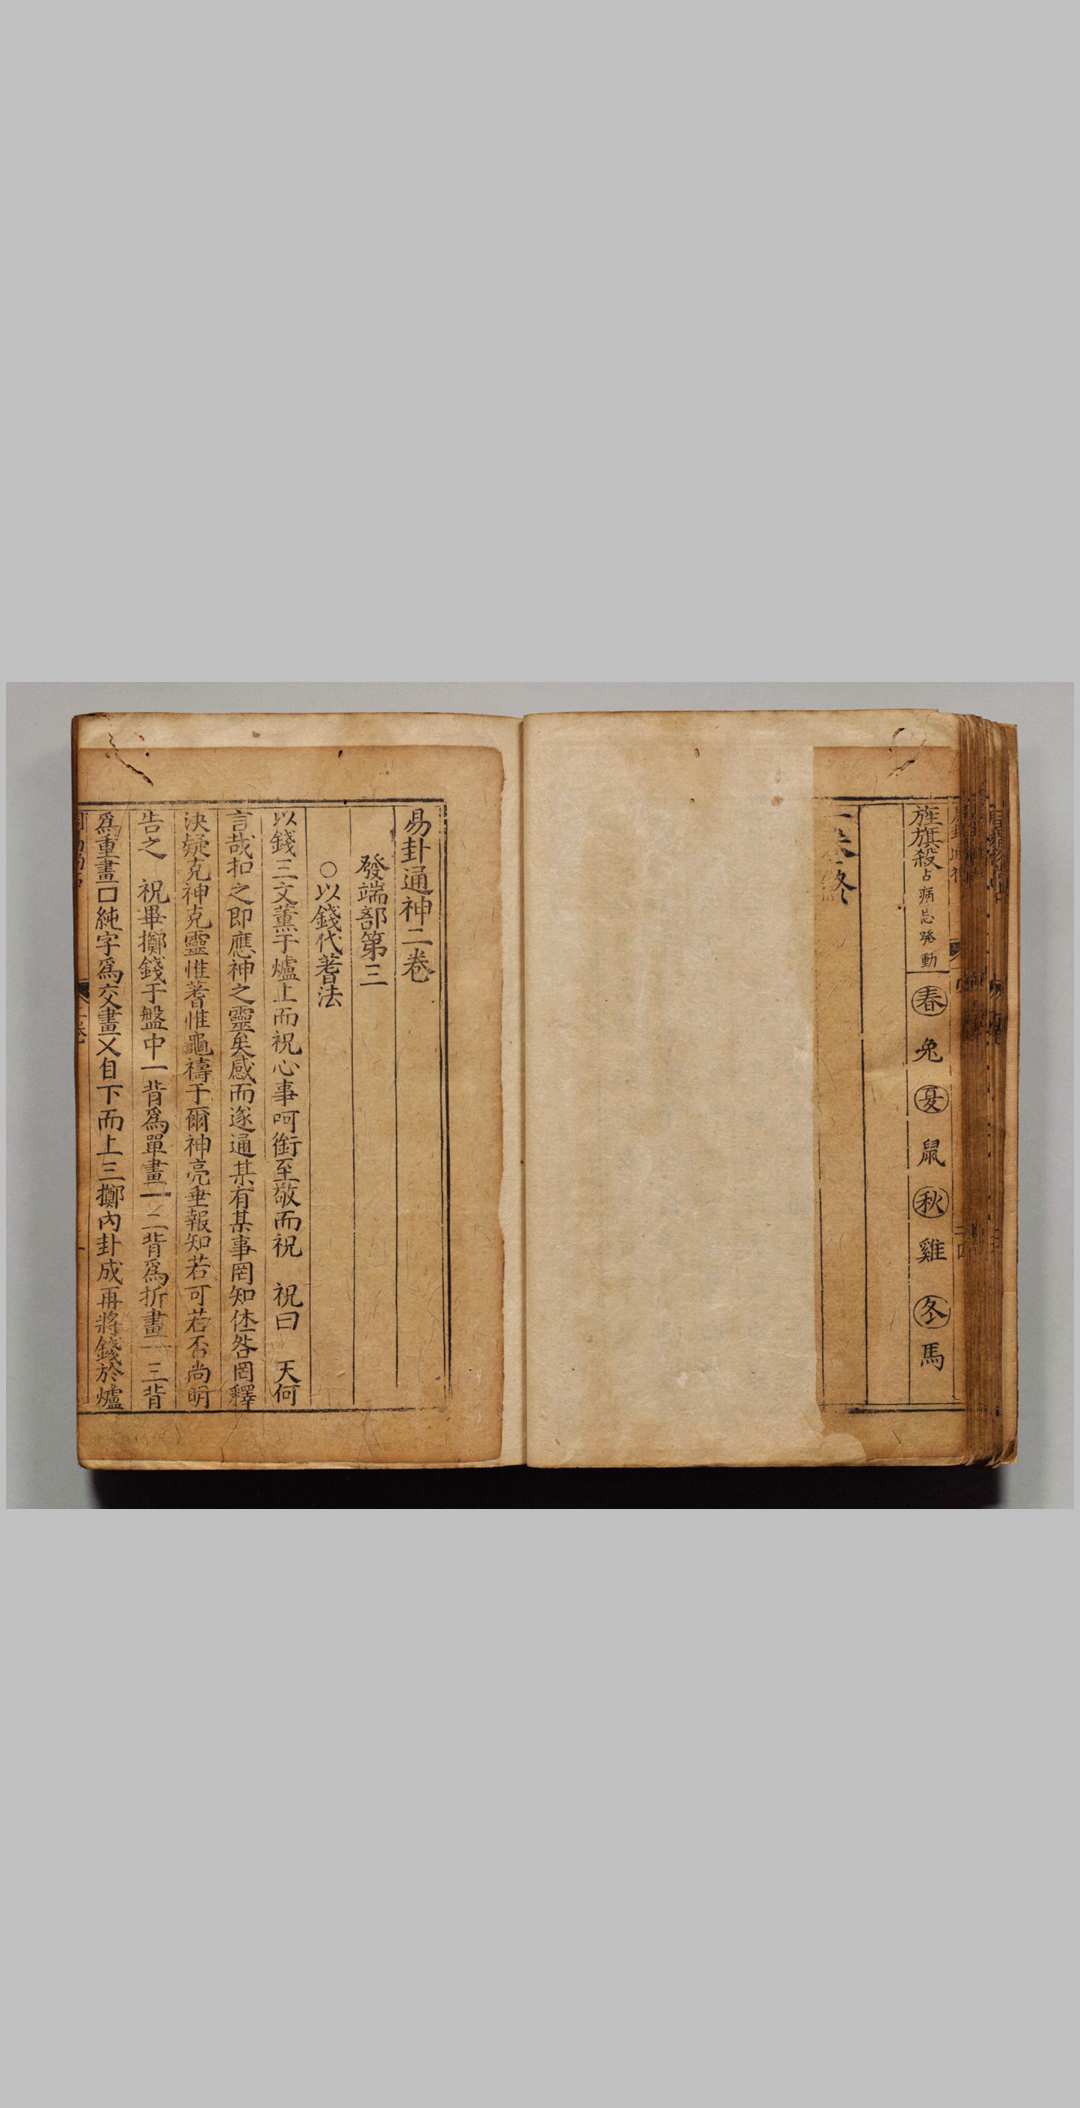 旌旗殺占病忌發動 春 兔 夏 鼠 秋 雞 冬 馬
終
易卦通神二卷
發端部第三
○以錢代蓍法
以錢三文薰于爐上而祝心事呵銜至敬而祝 祝曰 天何
言哉扣之即應神之靈矣感而遂通某有某事罔知休咎罔釋
決疑克神克靈惟蓍惟龜禱于爾神亮垂報知若可若否尚明
告之 祝畢擲錢于盤中一背爲單畫一二背爲折畫--三背
爲重畫口純字爲交畫乂自下而上三擲內卦成再將錢於爐